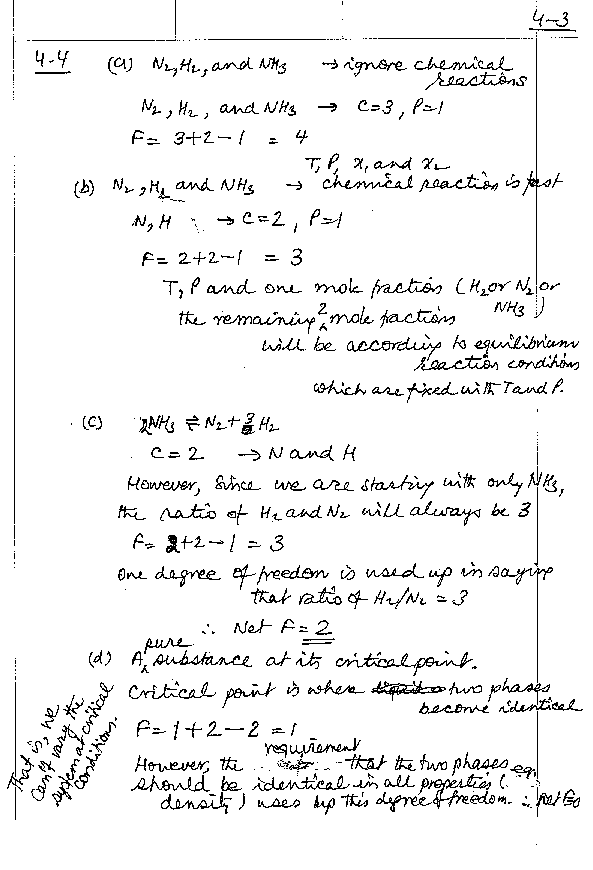 4-3
4-4 (a) N₂, H₂, and NH₃ → ignore chemical
reactions
N₂, H₂, and NH₃ → C=3, P=1
F= 3+2-1 = 4
T, P, x₁ and x₂
(b) N₂, H₂ and NH₃ → chemical reaction is fast
N, H → C=2, P=1
F= 2+2-1 = 3
T, P and one mole fraction (H₂ or N₂ or
NH₃)
the remaining 2 mole factions
will be according to equilibrium
reaction conditions
which are fixed with T and P.
(c) 2NH₃ ⇌ N₂+3H₂
C=2 → N and H
However, since we are starting with only NH₃,
the ratio of H₂ and N₂ will always be 3
F= 2+2-1 = 3
one degree of freedom is used up in saying
that ratio of H₂/N₂ = 3
∴ Net F=2
(d) A pure substance at its critical point.
Critical point is where two phases
become identical
F=1+2-2=1
However, the requirement that the two phases
should be identical in all properties (eg.
density) uses up this degree of freedom. ∴ Net F=0
That is, we
can't vary the
system at critical
conditions.